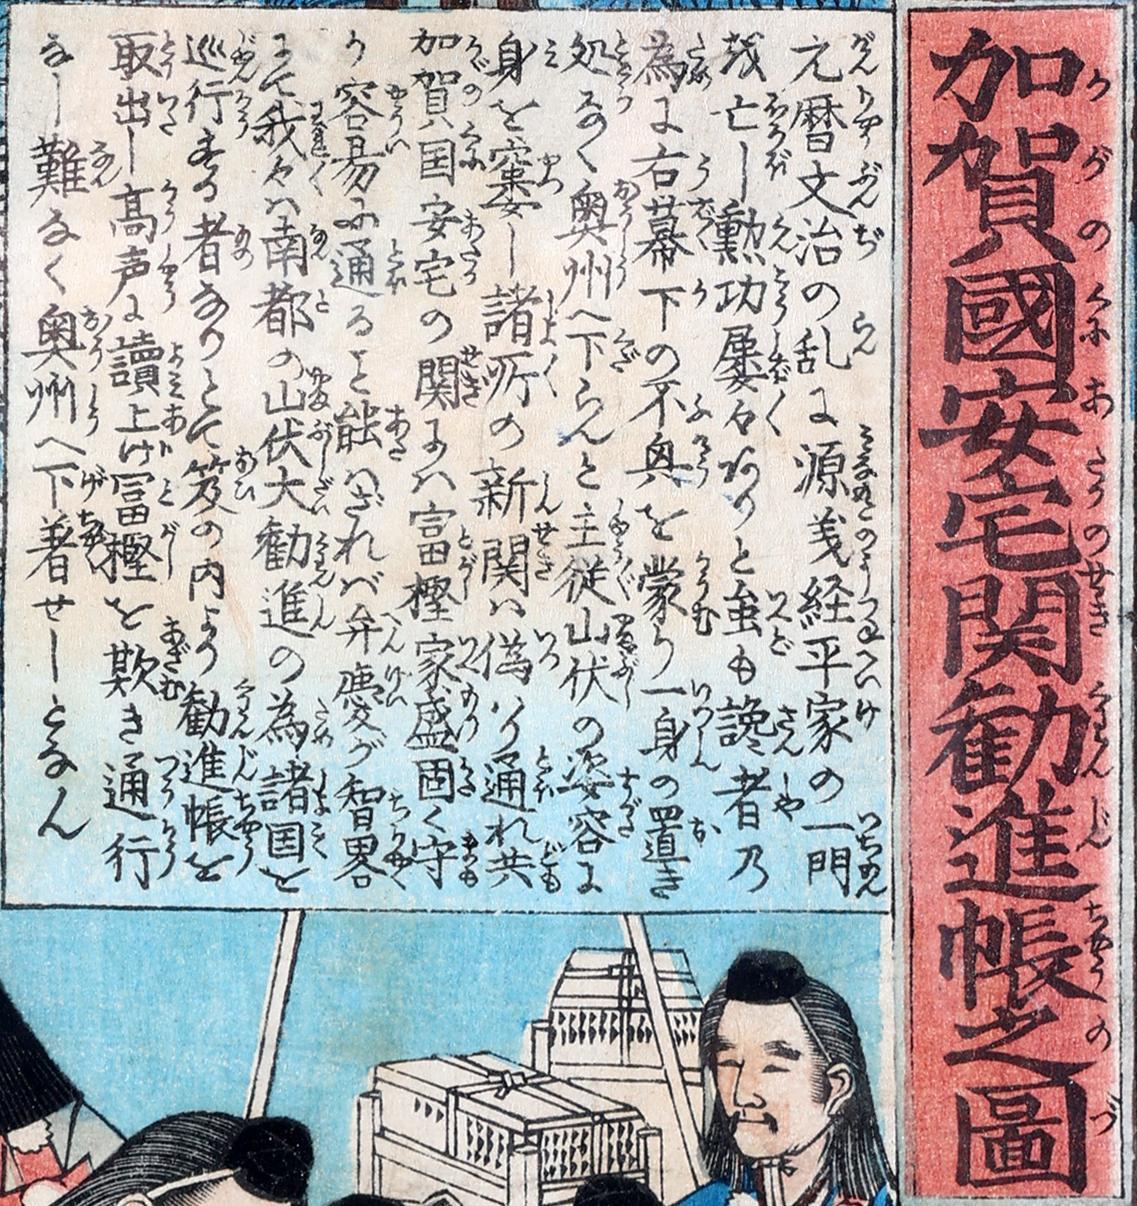 加賀國安宅関勧進帳之圖
元暦文治の乱に源義経平家の一門
を亡し勲功屡々ありと虽も讒者乃
為に右幕下の不興を蒙り一身の置き
処なく奥州へ下らんと主従山伏の姿容に
身を窶し諸所の新関ハ偽りて通れ共
加賀国安宅の関にハ富樫家盛固く守
り容易に通ること能ハざれバ弁慶が智畧
にて我々ハ南都の山伏大勧進の為諸国を
巡行する者なりとて笈の内より勧進帳を
取出し高声に讀上け冨樫を欺き通行
なし難なく奥州へ下着せしとなん